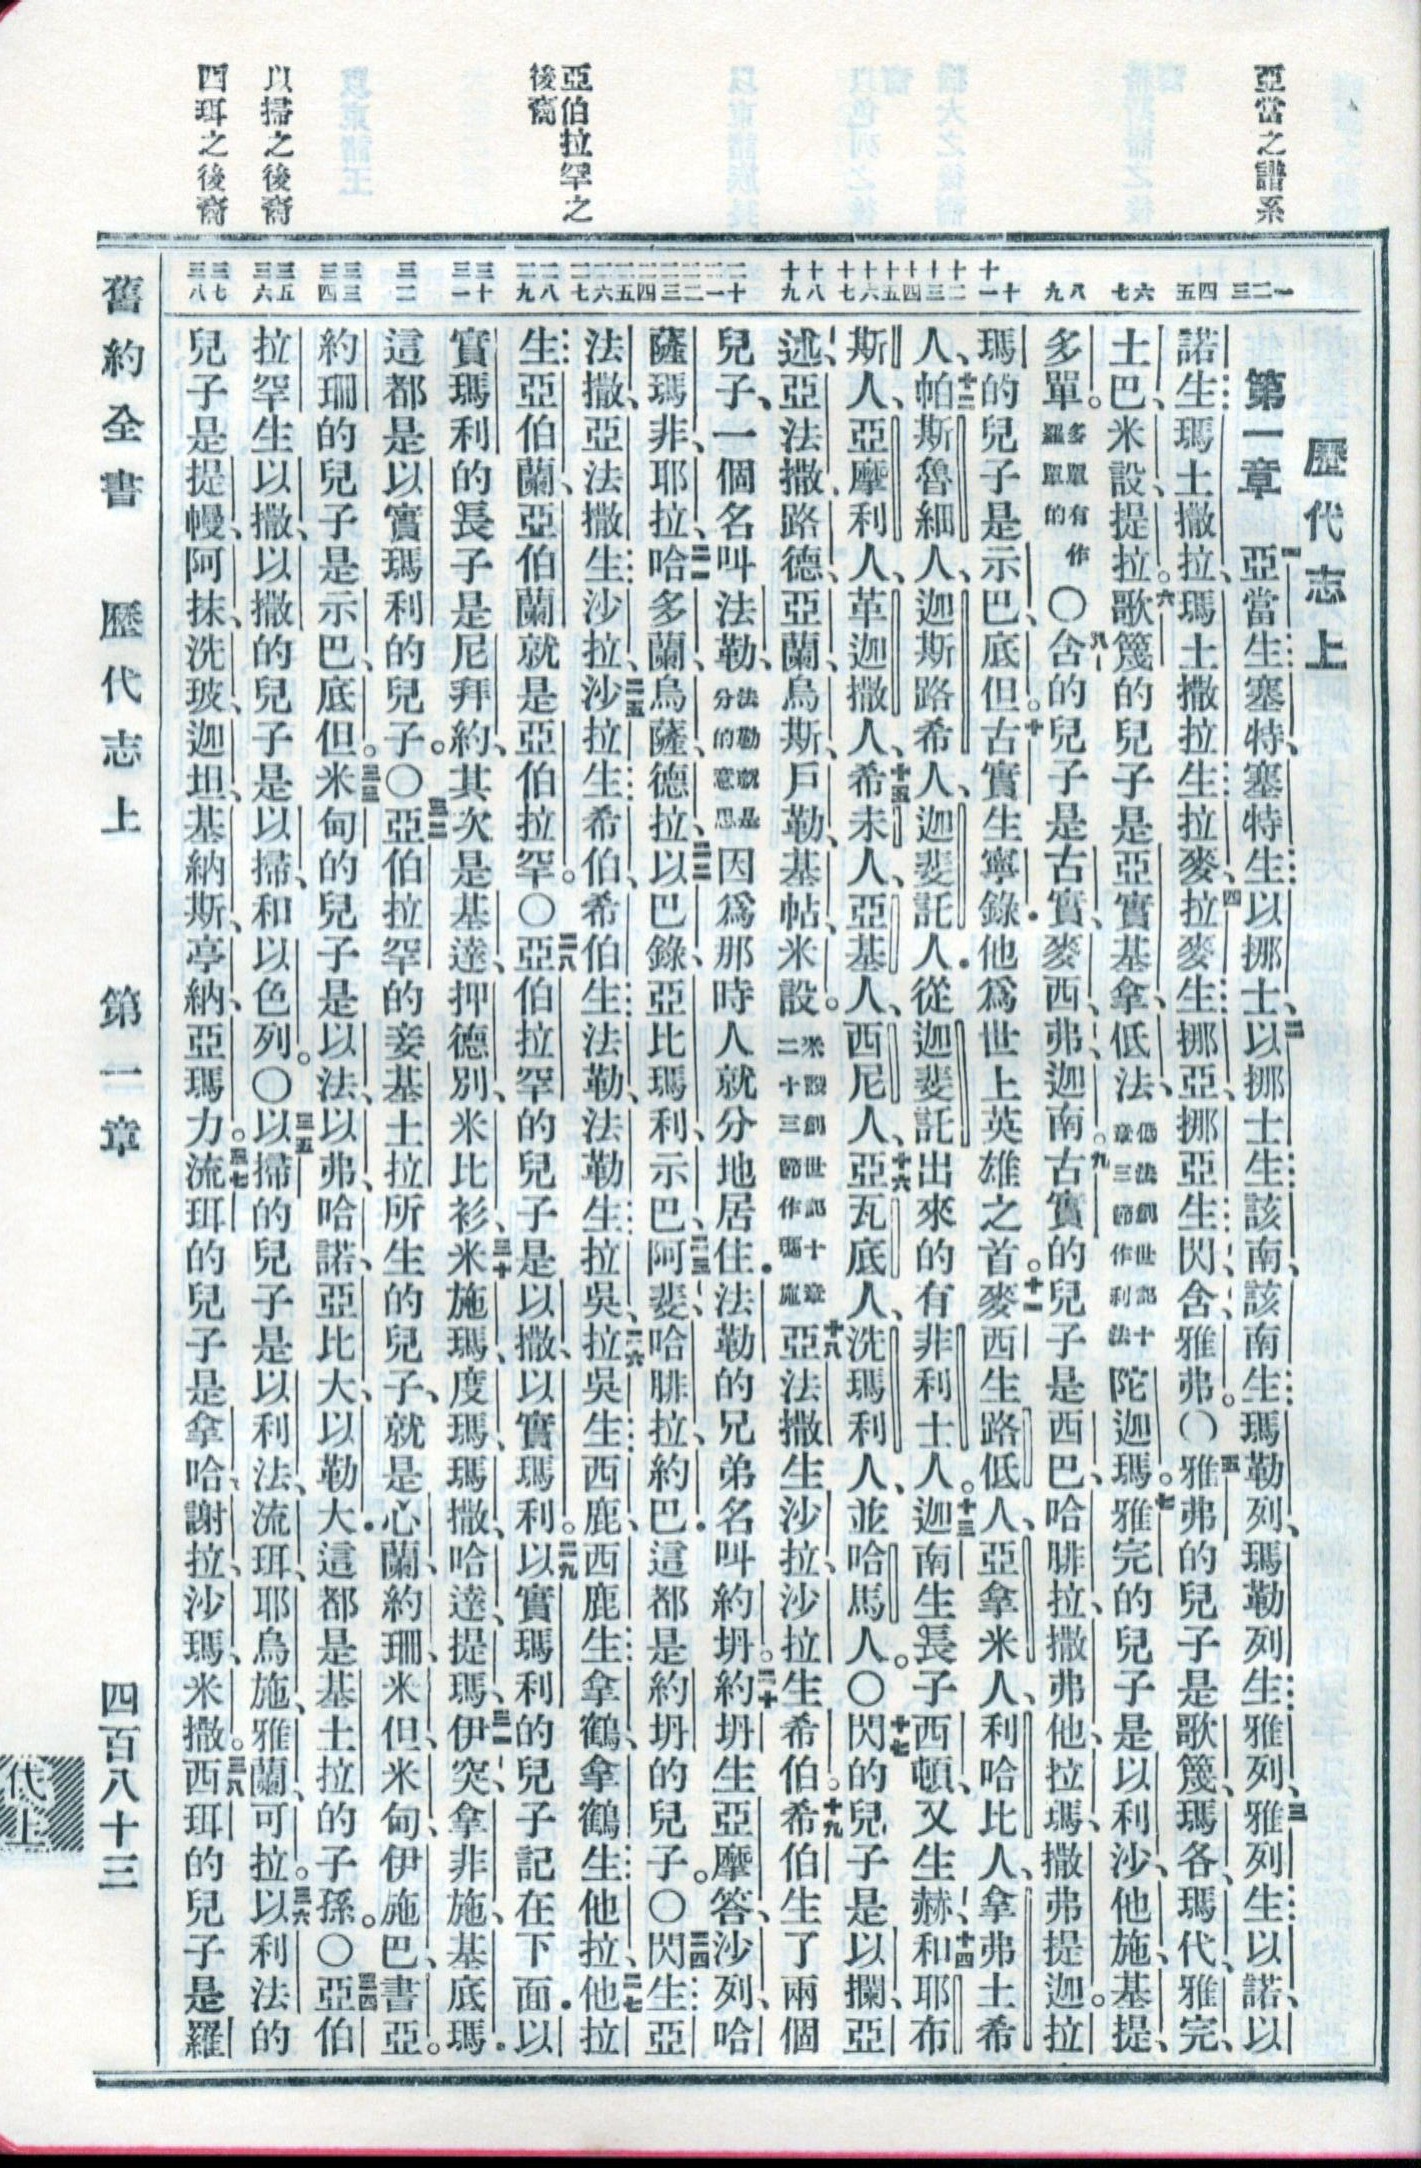 亞當之譜系
亞伯拉罕之
後裔
以掃之後裔
西珥之後裔
歷代志上
第一章 一亞當生塞特、塞特生以挪士、二以挪士生該南、該南生瑪勒列、瑪勒列生雅列、三雅列生以諾、以
諾生瑪土撒拉、瑪土撒拉生拉麥、四拉麥生挪亞、挪亞生閃、含、雅弗。〇五雅弗的兒子是歌篾、瑪各、瑪代、雅完、
土巴、米設、提拉。六歌篾的兒子是亞實基拿、低法、低法創世記十章三節作利法陀迦瑪。七雅完的兒子是以利沙、他施、基提、
多單。多單有作羅單的〇八含的兒子是古實、麥西、弗、迦南。九古實的兒子是西巴、哈腓拉、撒弗他、拉瑪、撒弗提迦。拉
瑪的兒子是示巴、底但。十古實生寧錄．他爲世上英雄之首。十一麥西生路低人、亞拿米人、利哈比人、拿弗土希
人、十二帕斯魯細人、迦斯路希人、迦斐託人．從迦斐託出來的有非利士人。十三迦南生長子西頓、又生赫、十四和耶布
斯人、亞摩利人、革迦撒人、十五希未人、亞基人、西尼人、十六亞瓦底人、洗瑪利人、並哈馬人。〇十七閃的兒子是以攔、亞
述、亞法撒、路德、亞蘭、烏斯、戶勒、基帖、米設。米設創世記十章二十三節作瑪施十八亞法撒生沙拉、沙拉生希伯。十九希伯生了兩個
兒子、一個名叫法勒、法勒就是分的意思因爲那時人就分地居住．法勒的兄弟名叫約坍。二十約坍生亞摩答、沙列、哈
薩瑪非、耶拉、二一哈多蘭、烏薩、德拉、二二以巴錄、亞比瑪利、示巴、二三阿斐、哈腓拉、約巴．這都是約坍的兒子。〇二四閃生亞
法撒、亞法撒生沙拉、二五沙拉生希伯、希伯生法勒、法勒生拉吳、二六拉吳生西鹿、西鹿生拿鶴、拿鶴生他拉、二七他拉
生亞伯蘭、亞伯蘭就是亞伯拉罕。〇二八亞伯拉罕的兒子是以撒、以實瑪利。二九以實瑪利的兒子記在下面．以
實瑪利的長子是尼拜約、其次是基達、押德別、米比衫、三十米施瑪、度瑪、瑪撒、哈達、提瑪、三一伊突、拿非施、基底瑪．
這都是以實瑪利的兒子。〇三二亞伯拉罕的妾基土拉所生的兒子、就是心蘭、約珊、米但、米甸、伊施巴、書亞。
約珊的兒子是示巴、底但。三三米甸的兒子是以法、以弗、哈諾、亞比大、以勒大．這都是基土拉的子孫。〇三四亞伯
拉罕生以撒、以撒的兒子是以掃、和以色列。〇三五以掃的兒子是以利法、流珥、耶烏施、雅蘭、可拉。三六以利法的
兒子是提幔、阿抹、洗玻、迦坦、基納斯、亭納、亞瑪力。三七流珥的兒子是拿哈、謝拉、沙瑪、米撒。三八西珥的兒子是羅
舊約全書 歷代志上 第一章 四百八十三
代上